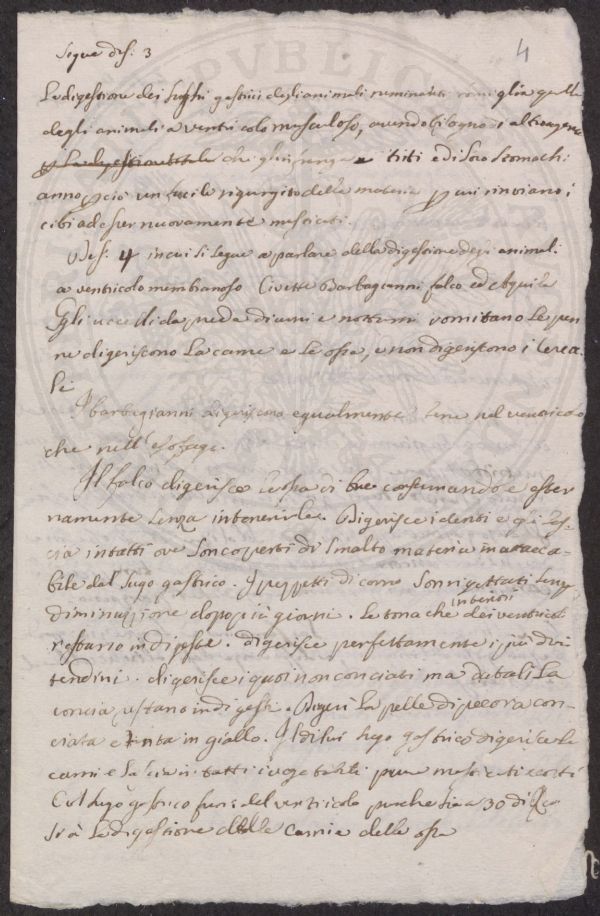 Segue dis: 3
4
La digestione dei sughi gastrici degli animali ruminanti somiglia quella
degli animali a ventricolo musculoso, avendo bisogno di altro agente
che gli infranga e triti e di loro stomachi
anno perciò un facile rigurgito della materia per cui rinviano i
cibi ad esser nuovamente masticati.
Dis: 4 in cui si segue a parlare della digestione degli animali
a ventricolo membranoso Civette Barbagianni falco ed Aquila
Gli uccelli da preda diurni e notturni vomitano le pen
ne digeriscono la carne e le ossa, e non digeriscono i cerea-
li
I barbagianni digeriscono egualmente bene nel ventricolo
che nell'esofago.
Il falco digerisce le ossa di bue consumandole ester
namente senza intenerirle. Digerisce i denti e gli las-
cia intatti ove son coperti di smalto materia inattacca-
bile dal sugo gastrico. I pezzetti di corno son rigettati senza
diminuzione dopo più giorni. Le tonache interiori dei ventricoli
restano indigeste. digerisce perfettamente i più duri
tendini. digerisce i quoi non conciati ma da tali la
concia restano indigesti. Digerì la pelle di pecora con
ciata e tinta in giallo. Il di lui sugo gastrico digerisce le
carni e lascia intatti i vegetabili pure masticati e cotti
Col sugo gastrico fuori del ventricolo purche sia a 30 di
la digestione delle carni e delle ossa